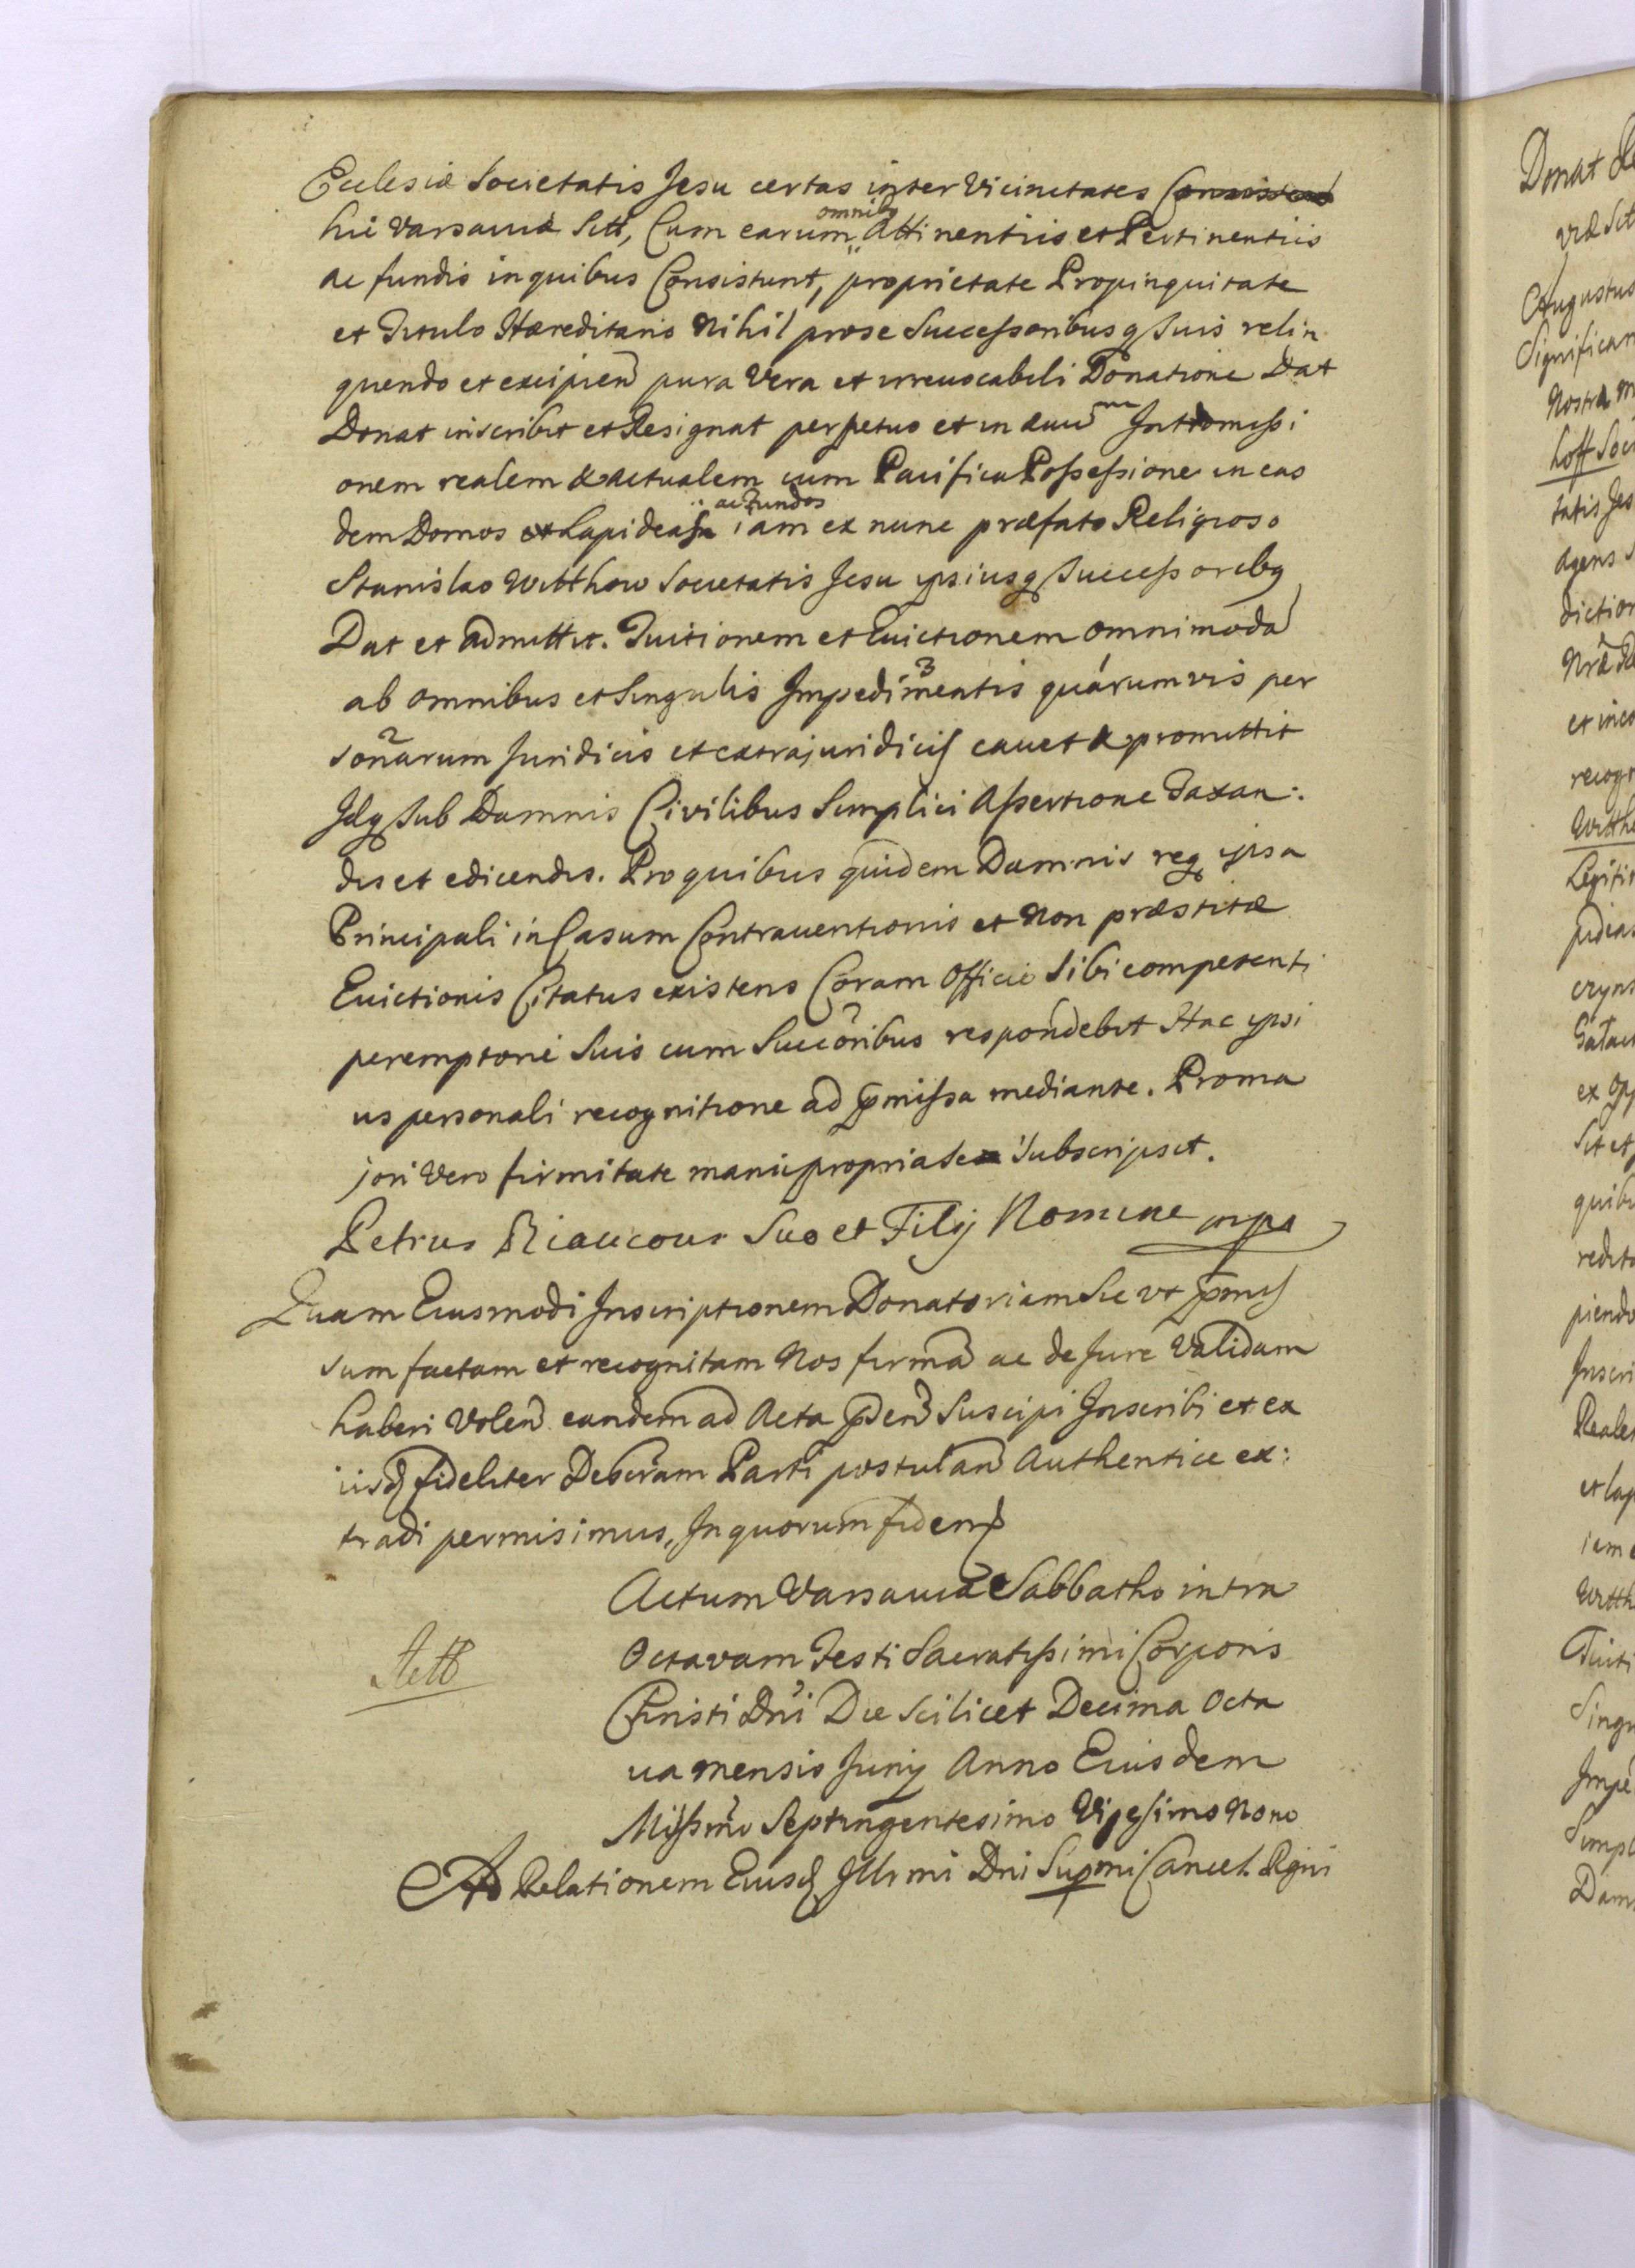 Ecclesiæ Societatis Jesu certas inter Vicinitates
hic Varsaviæ Sitt, Cum earum omnibq Attinentiis et Pertinentiis
ac fundis in quibus Consistunt, proprietate Propinquitate
et Titulo Hæreditario Nihil pro se Successoribusq Suis relin
quendo et excipien pura Vera et irreuocabili Donatione Dat
Donat inscribit et Resignat perpetuo et in æuum Intromissi
onem realem & actualem cum Pacifica Possessione in eas
dem Domos Lapideas ac Fundos iam ex nunc præfato Religioso
Stanislao Witthow Societatis Jesu ipsiusq Successoribq
Dat et admittit. Tuitionem et Euictionem omnimoda
ab omnibus et Singulis Impedimentis quarumvis per
sonarum Juridicis et extrajuridicis cauet & promittit
Idq Sub Damnis Civilibus Simplici Assertione Taxan:
dis et edicendis. Pro quibus quidem Damnis req ipsa
Principali in Casum Contrauentionis et Non præstitæ
Euictionis Citatus existens Coram Officio Sibi competenti
peremptorie Suis cum Succoribus respondebit Hac ipsi
us personali recognitione ad pmissa mediante. Pro ma
jori Vero firmitate manu propria se Subscripsit.
Petrus Riaucour Suo et Filij Nomine mpa
Quam Eiusmodi Inscriptionem Donatoriam Sic vt pmis
sum factam et recognitam Nos firma ac de Jure Validam
haberi Volen eandem ad Acta pden Suscipi Inscribi et ex
iisd fideliter Descram Parti postulan Authentice ex:
tradi permisimus, In quorum fidem
Actum Varsauiæ Sabbatho intra
Octavam Festi Sacratissimi Corporis
Christi Dni Die Scilicet Decima Octa
ua mensis Junij Anno Eiusdem
Millmo Septingentesimo Vigesimo Nono
Ad Relationem Eiusd Illrmi Dni Supmi Cancel. Rgni
Donat